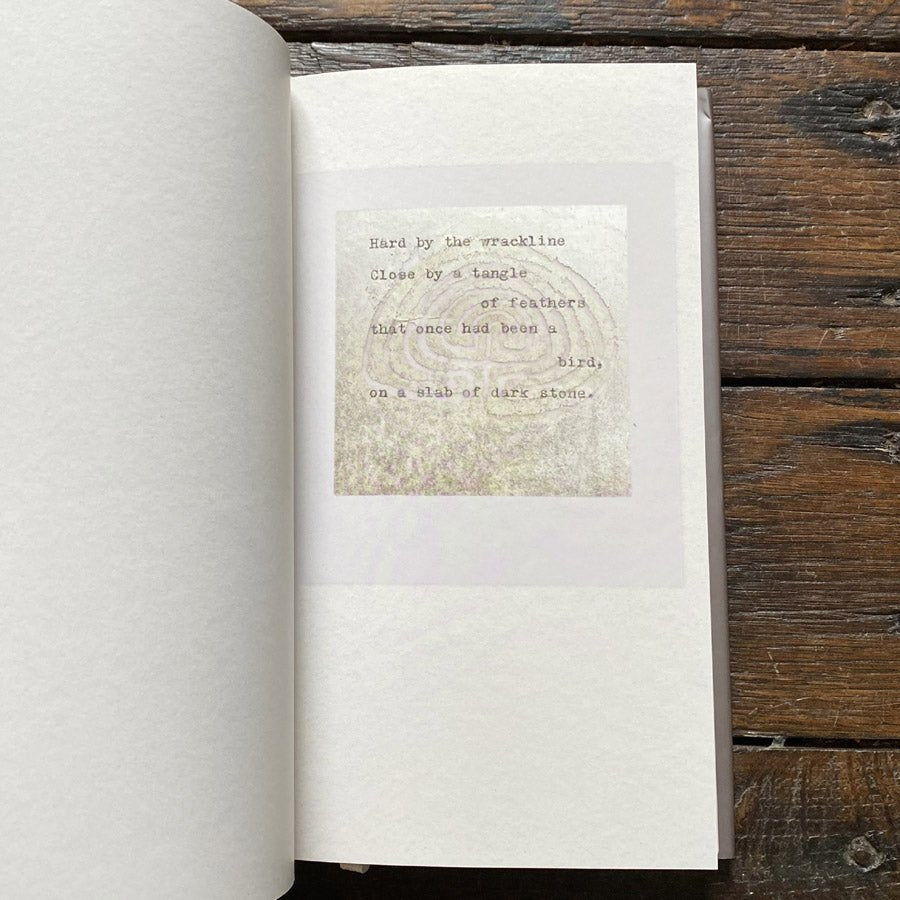 Hard by the wrackline
Close by a tangle
of feathers
that once had been a
bird,
on a slab of dark stone.